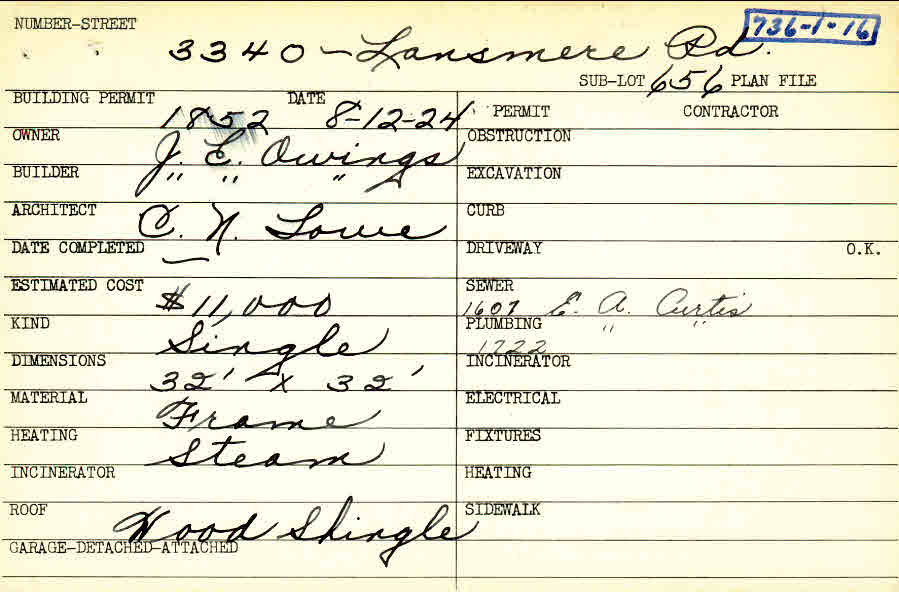 NUMBER-STREET 3340 - Lansmere Rd. 736-1-16
SUB-LOT 656 PLAN FILE
BUILDING PERMIT 1852 DATE 8-12-24 PERMIT CONTRACTOR
OWNER J. E. Owings OBSTRUCTION
BUILDER " " " EXCAVATION
ARCHITECT C. N. Lowe CURB
DATE COMPLETED — DRIVEWAY O.K.
ESTIMATED COST $11,000 SEWER 1607 E. A. Curtis
KIND Single PLUMBING 1722 " "
DIMENSIONS 32' x 32' INCINERATOR
MATERIAL Frame ELECTRICAL
HEATING Steam FIXTURES
INCINERATOR HEATING
ROOF Wood Shingle SIDEWALK
GARAGE-DETACHED-ATTACHED